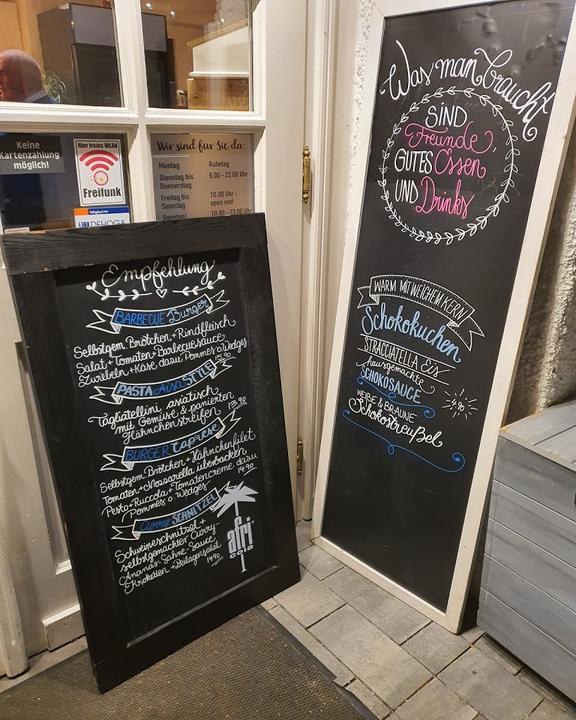 Keine
Kartenzahlung
möglich!
Hier freies WLAN
Freifunk
Mitglied im
DEHOGA
Wir sind für Sie da:
Montag Ruhetag
Dienstag bis
Donnerstag 9.00 - 23.00 Uhr
Freitag bis
Samstag 10.00 Uhr -
open end
Sonntag 10.00 - 23.00 Uhr
Empfehlung
BARBECUE Burger
Selbstgem. Brötchen + Rindfleisch
Salat + Tomaten + Barbecuesauce
Zwiebeln + Käse dazu Pommes o. Wedges
PASTA Asia STYLE
Tagliatellini asiatisch
mit Gemüse & panierten
Hähnchenstreifen 13,90
BURGER Caprese
Selbstgem. Brötchen + Hähnchenfilet
Tomaten + Mozzarella überbacken
Pesto + Ruccola + Tomatencreme dazu
Pommes o. Wedges 14,90
Curry SCHNITZEL
Schweineschnitzel +
selbstgemachter Curry-
Ananas-Sahne-Sauce
Kroketten + Beilagensalat 14,90
afri
cola
Was man braucht
SIND
Freunde,
GUTES Essen
UND Drinks
WARM MIT WEICHEM KERN
Schokokuchen
STRACCIATELLA Eis
hausgemachte
SCHOKOSAUCE
WEIßE & BRAUNE
Schokostreußel